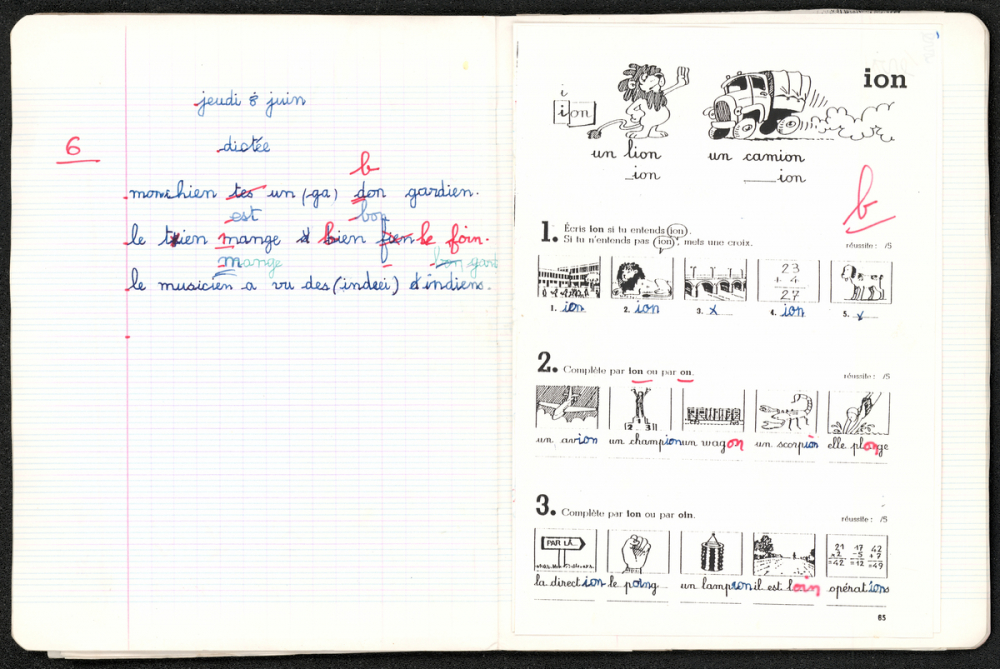 jeudi 8 juin
6
dictée
b
mon chien tes un (ga) don gardien.
est bon
le tien mange bien le foin.
mange bon gard
le musicien a vu des (indeei) d'indiens.
ion
i
ion
un lion
un camion
_ion
____ion
b
1. Écris ion si tu entends (ion).
Si tu n'entends pas (ion), mets une croix.
réussite : /5
23
+ 4
27
1. ion 2. ion 3. x 4. ion 5. x
2. Complète par ion ou par on.
réussite : /5
2 1 3
un avion un champion un wagon un scorpion elle plonge
3. Complète par ion ou par oin.
réussite : /5
PAR LÀ
21 17 42
×2 -5 +7
=42 =12 =49
la direction le poing un lampion il est loin opérations
65